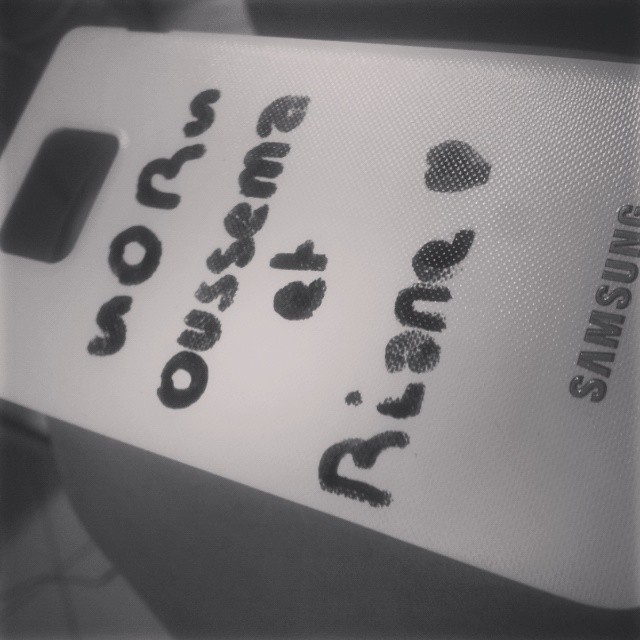 sons
oussama
et
Riana ♥
SAMSUNG